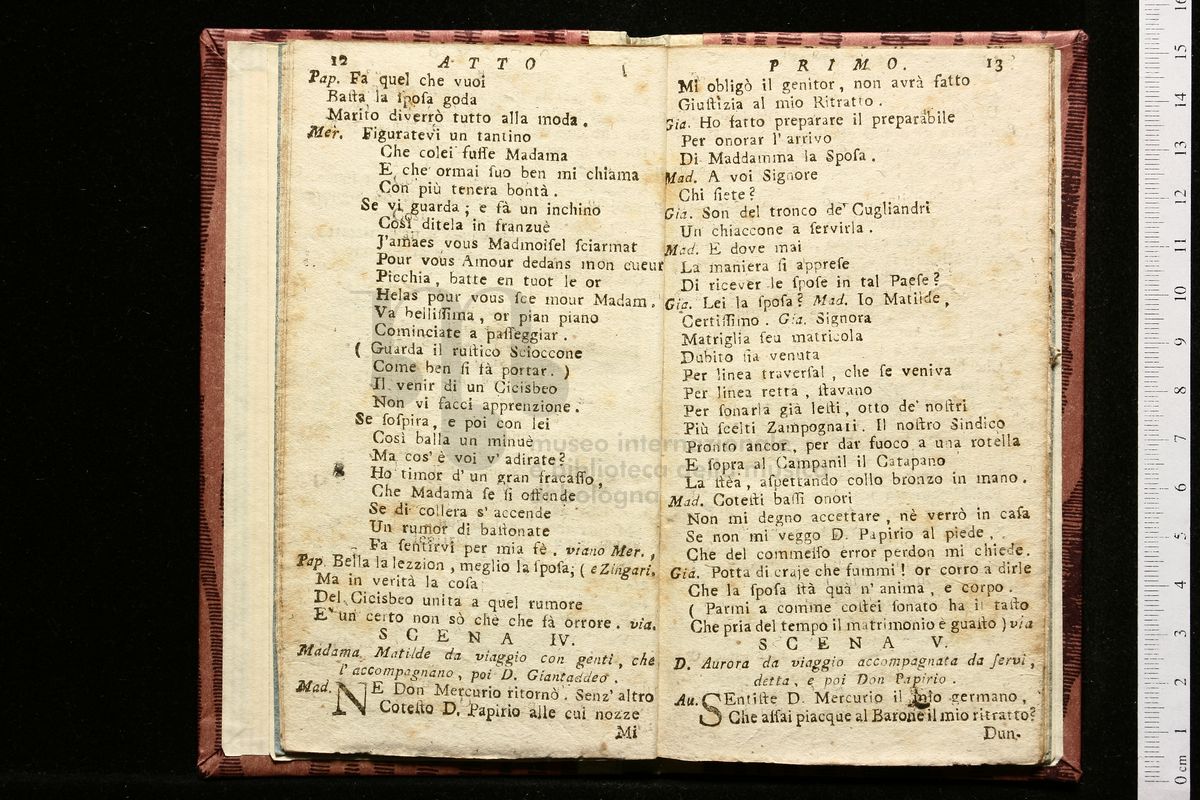 12 A T T O
Pap. Fa quel che vuoi
Baſta la ſpoſa goda
Marito diverrò tutto alla moda.
Mer. Figuratevi un tantino
Che colei fuſſe Madama
E che ormai ſuo ben mi chiama
Con più tenera bontà.
Se vi guarda; e fà un inchino
Così ditela in franzuè
J'amaes vous Madmoiſel ſciarmat
Pour vous Amour dedans mon cueur
Picchia, batte en tuot le or
Helas pour vous ſce mour Madam.
Va belliſſima, or pian piano
Cominciate a paſſeggiar.
( Guarda il ruſtico Scioccone
Come ben ſi fà portar. )
Il venir di un Cicisbeo
Non vi facci apprenzione.
Se ſoſpira, e poi con lei
Così balla un minuè
Ma cos' è voi v' adirate?
Ho timor d' un gran fracaſſo,
Che Madama ſe ſi offende
Se di collera s' accende
Un rumor di baſtonate
Fa ſentirvi per mia fè. viano Mer.,
Pap. Bella la lezzion, meglio la ſpoſa; ( e Zingari.
Ma in verità la coſa
Del Cicisbeo unita a quel rumore
E' un certo non sò chè che fà orrore. via.
S C E N A IV.
Madama Matilde da viaggio con genti, che
l' accompagnano, poi D. Giantaddeo.
Mad. NE Don Mercurio ritornò. Senz' altro
Coteſto D. Papirio alle cui nozze
Mi
P R I M O. 13
Mi obligò il genitor, non avrà fatto
Giuſtizia al mio Ritratto.
Gia. Ho fatto preparare il preparabile
Per onorar l' arrivo
Di Maddamma la Spoſa.
Mad. A voi Signore
Chi ſiete?
Gia. Son del tronco de' Cugliandri
Un chiaccone a ſervirla.
Mad. E dove mai
La maniera ſi appreſe
Di ricever le ſpoſe in tal Paeſe?
Gia. Lei la ſpoſa? Mad. Io Matilde,
Certiſſimo. Gia. Signora
Matriglia ſeu matricola
Dubito ſia venuta
Per linea traverſal, che ſe veniva
Per linea retta, ſtavano
Per ſonarla già leſti, otto de' noſtri
Più ſcelti Zampognari. Il noſtro Sindico
Pronto ancor, per dar fuoco a una rotella
E ſopra al Campanil il Catapano
La ſtèa, aſpettando collo bronzo in mano.
Mad. Coteſti baſſi onori
Non mi degno accettare, nè verrò in caſa
Se non mi veggo D. Papirio al piede,
Che del commeſſo error perdon mi chiede.
Gia. Potta di craje che fummi! or corro a dirle
Che la ſpoſa ſtà quà n' anima, e corpo.
( Parmi a comme coſtei ſonato ha il taſto
Che pria del tempo il matrimonio è guaſto ) via
S C E N A V.
D. Aurora da viaggio accompagnata da ſervi,
detta, e poi Don Papirio.
Au. SEntiſte D. Mercurio il mio germano,
Che aſſai piacque al Barone il mio ritratto?
Dun-
museo internazionale
e biblioteca della musica
bologna